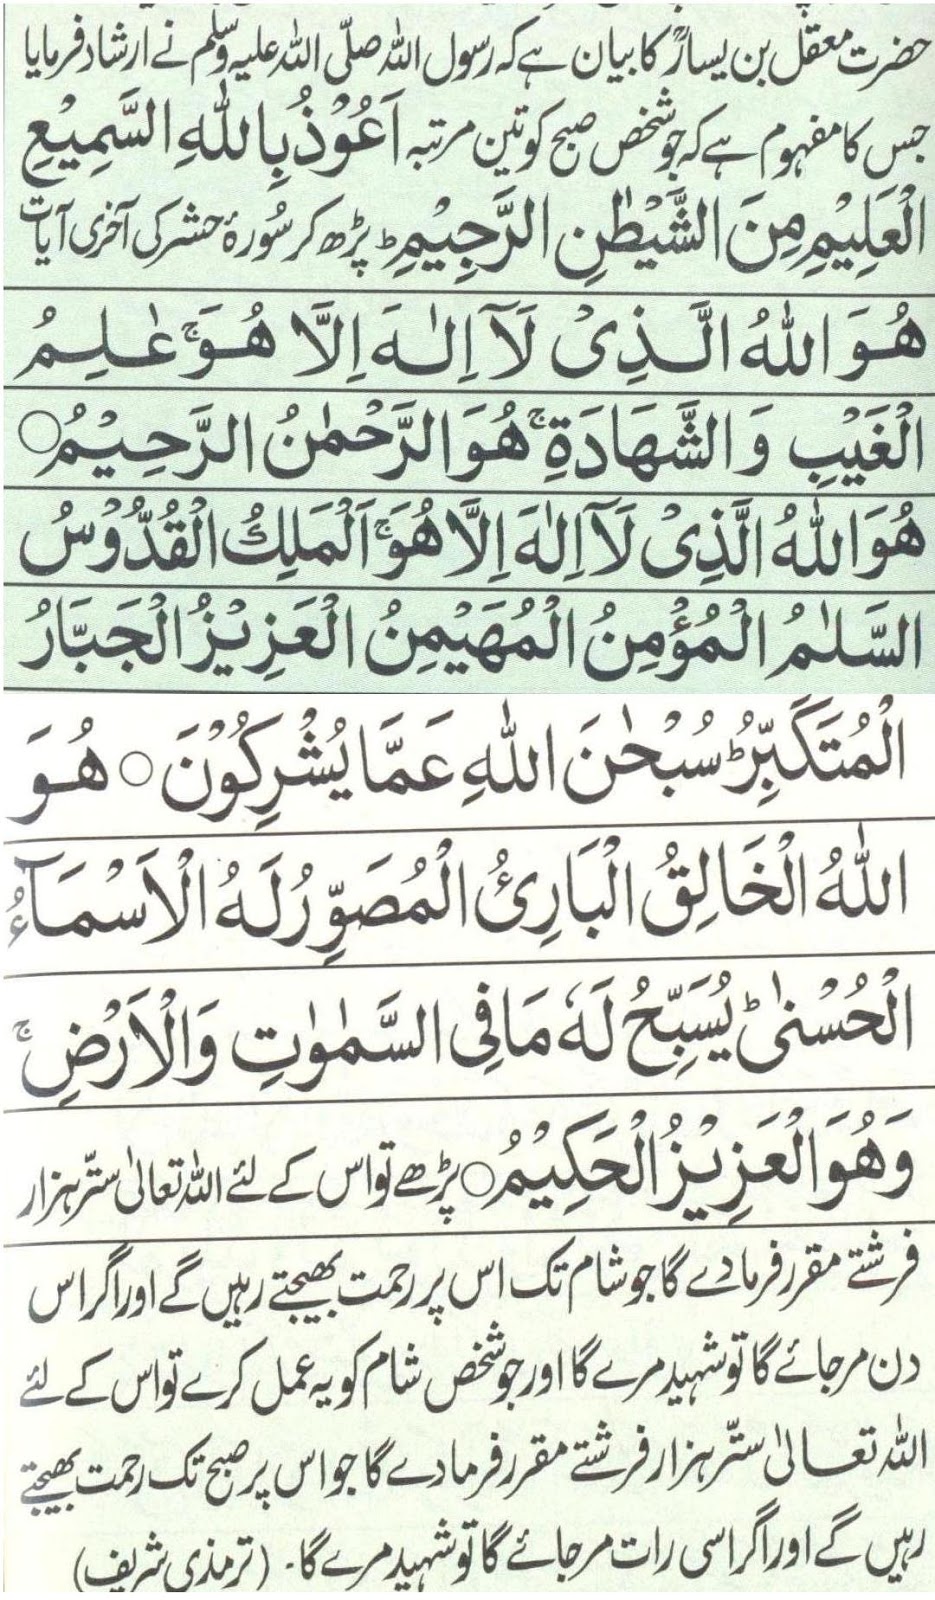 حضرت معقل بن یسارؓ کا بیان ہے کہ رسول اللہ صلّی اللہ علیہ وسلم نے ارشاد فرمایا
جس کا مفہوم ہے کہ جو شخص صبح کو تین مرتبہ اَعُوْذُ بِاللّٰهِ السَّمِيْعِ
الْعَلِيْمِ مِنَ الشَّيْطٰنِ الرَّجِيْمِ ؕ پڑھ کر سُورۂ حشر کی آخری آیات
هُوَ اللّٰهُ الَّذِىْ لَآ اِلٰـهَ اِلَّا هُوَ ۚ عٰلِمُ
الْغَيْبِ وَ الشَّهَادَةِ ۚ هُوَ الرَّحْمٰنُ الرَّحِيْمُ ○
هُوَ اللّٰهُ الَّذِىْ لَآ اِلٰهَ اِلَّا هُوَ ۚ اَلْمَلِكُ الْقُدُّوْسُ
السَّلٰمُ الْمُؤْمِنُ الْمُهَيْمِنُ الْعَزِيْزُ الْجَبَّارُ
الْمُتَكَبِّرُ ؕ سُبْحٰنَ اللّٰهِ عَمَّا يُشْرِكُوْنَ ○ هُوَ
اللّٰهُ الْخَالِقُ الْبَارِئُ الْمُصَوِّرُ لَهُ الْاَسْمَآءُ
الْحُسْنٰى ؕ يُسَبِّحُ لَهٗ مَا فِى السَّمٰوٰتِ وَالْاَرْضِ ۚ
وَهُوَ الْعَزِيْزُ الْحَكِيْمُ ○ پڑھے تو اس کے لئے اللہ تعالیٰ ستّر ہزار
فرشتے مقرر فرمادے گا جو شام تک اس پر رحمت بھیجتے رہیں گے اور اگر اس
دن مرجائے گا تو شہید مرے گا اور جو شخص شام کو یہ عمل کرے تو اس کے لئے
اللہ تعالیٰ ستّر ہزار فرشتے مقرر فرمادے گا جو اس پر صبح تک رحمت بھیجتے
رہیں گے اور اگر اسی رات مرجائے گا تو شہید مرے گا۔ (ترمذی شریف)